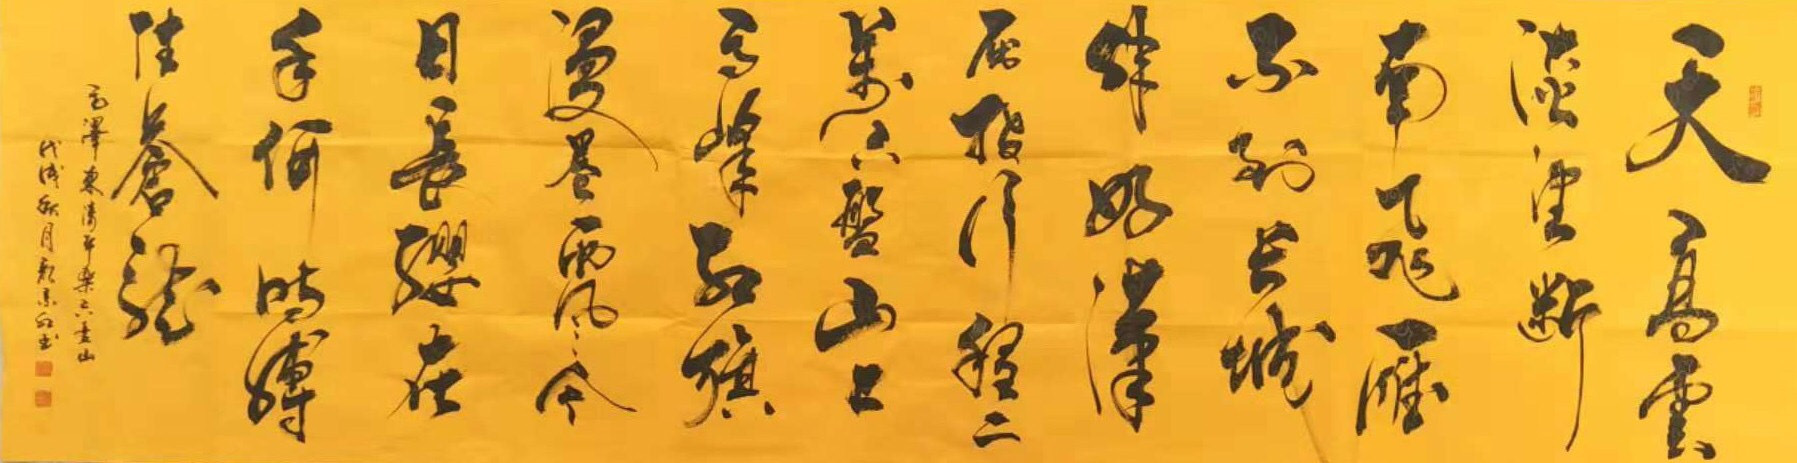 天高雲
淡望斷
南飛雁
不到长城
非好漢
屈指行程二
萬六盤山上
高峰紅旗
漫卷西風今
日長纓在
手何時縛
住蒼龍
毛澤東清平樂六盤山
戊戌秋月